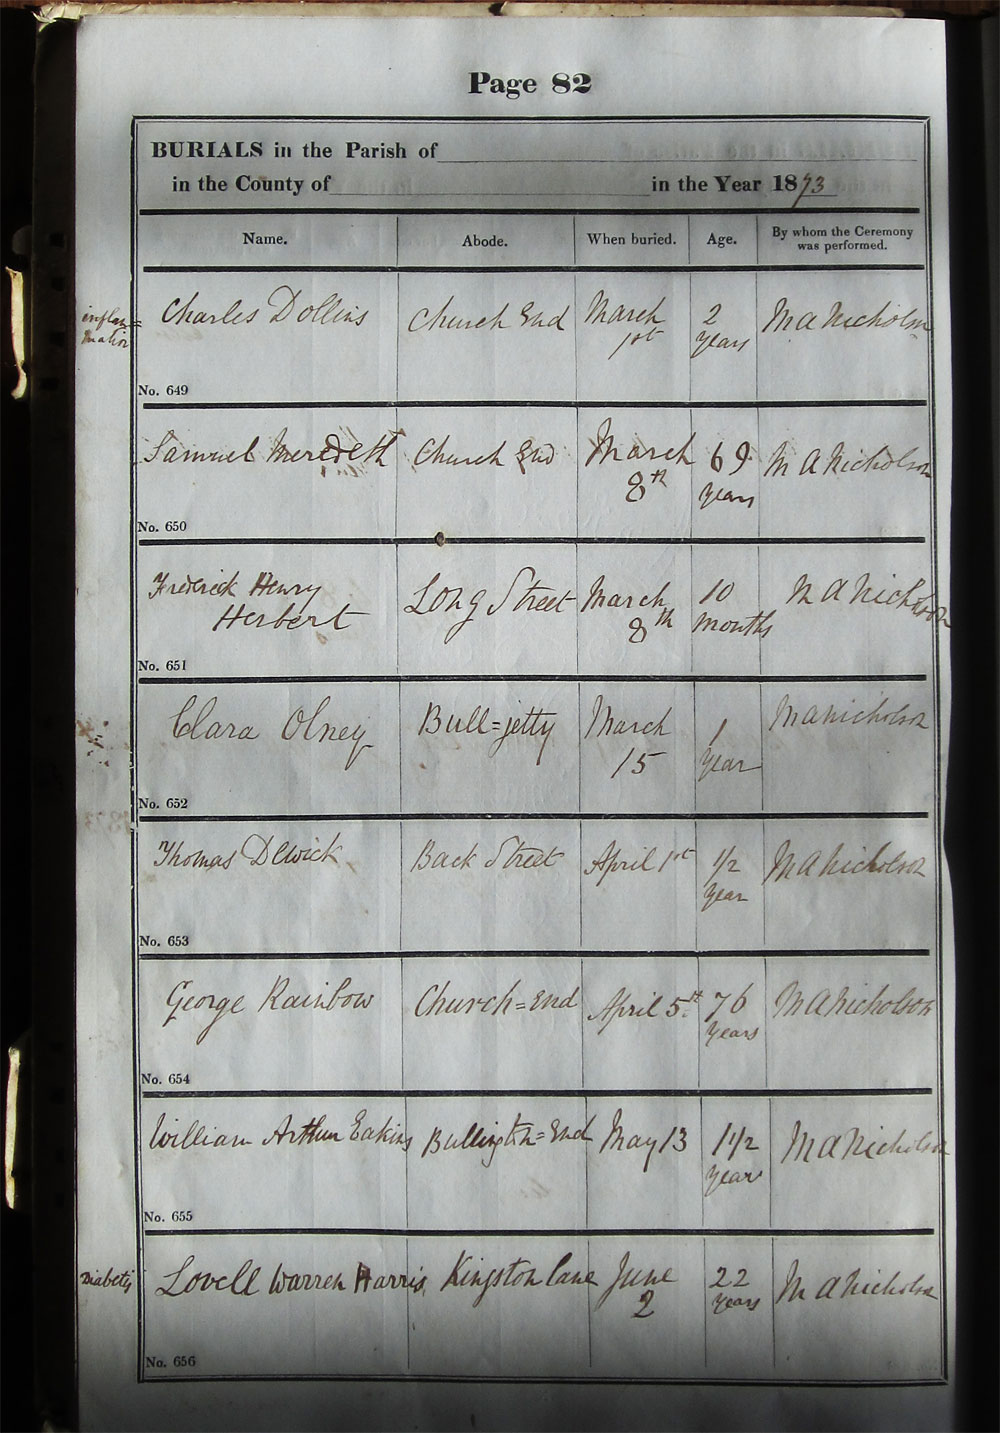 Page 82
BURIALS in the Parish of
in the County of in the Year 1873
Name. Abode. When buried. Age. By whom the Ceremony
was performed.
inflam=
mation
Charles Dollins Church End March 2 M A Nicholson
1st years
No. 649
Samuel Meredeth Church End March 69 M A Nicholson
8th years
No. 650
Frederick Henry Long Street March 10 M A Nicholson
Herbert 8th months
No. 651
Clara Olney Bull=jetty March 1 M A Nicholson
15 year
No. 652
Thomas Dewick Back Street April 1st 1/2 M A Nicholson
year
No. 653
George Rainbow Church=End April 5th 76 M A Nicholson
years
No. 654
William Arthur Eakins Bullington=End May 13 1 1/2 M A Nicholson
year
No. 655
Diabetis Lovell Warren Harris Kingston lane June 22 M A Nicholson
2 years
No. 656